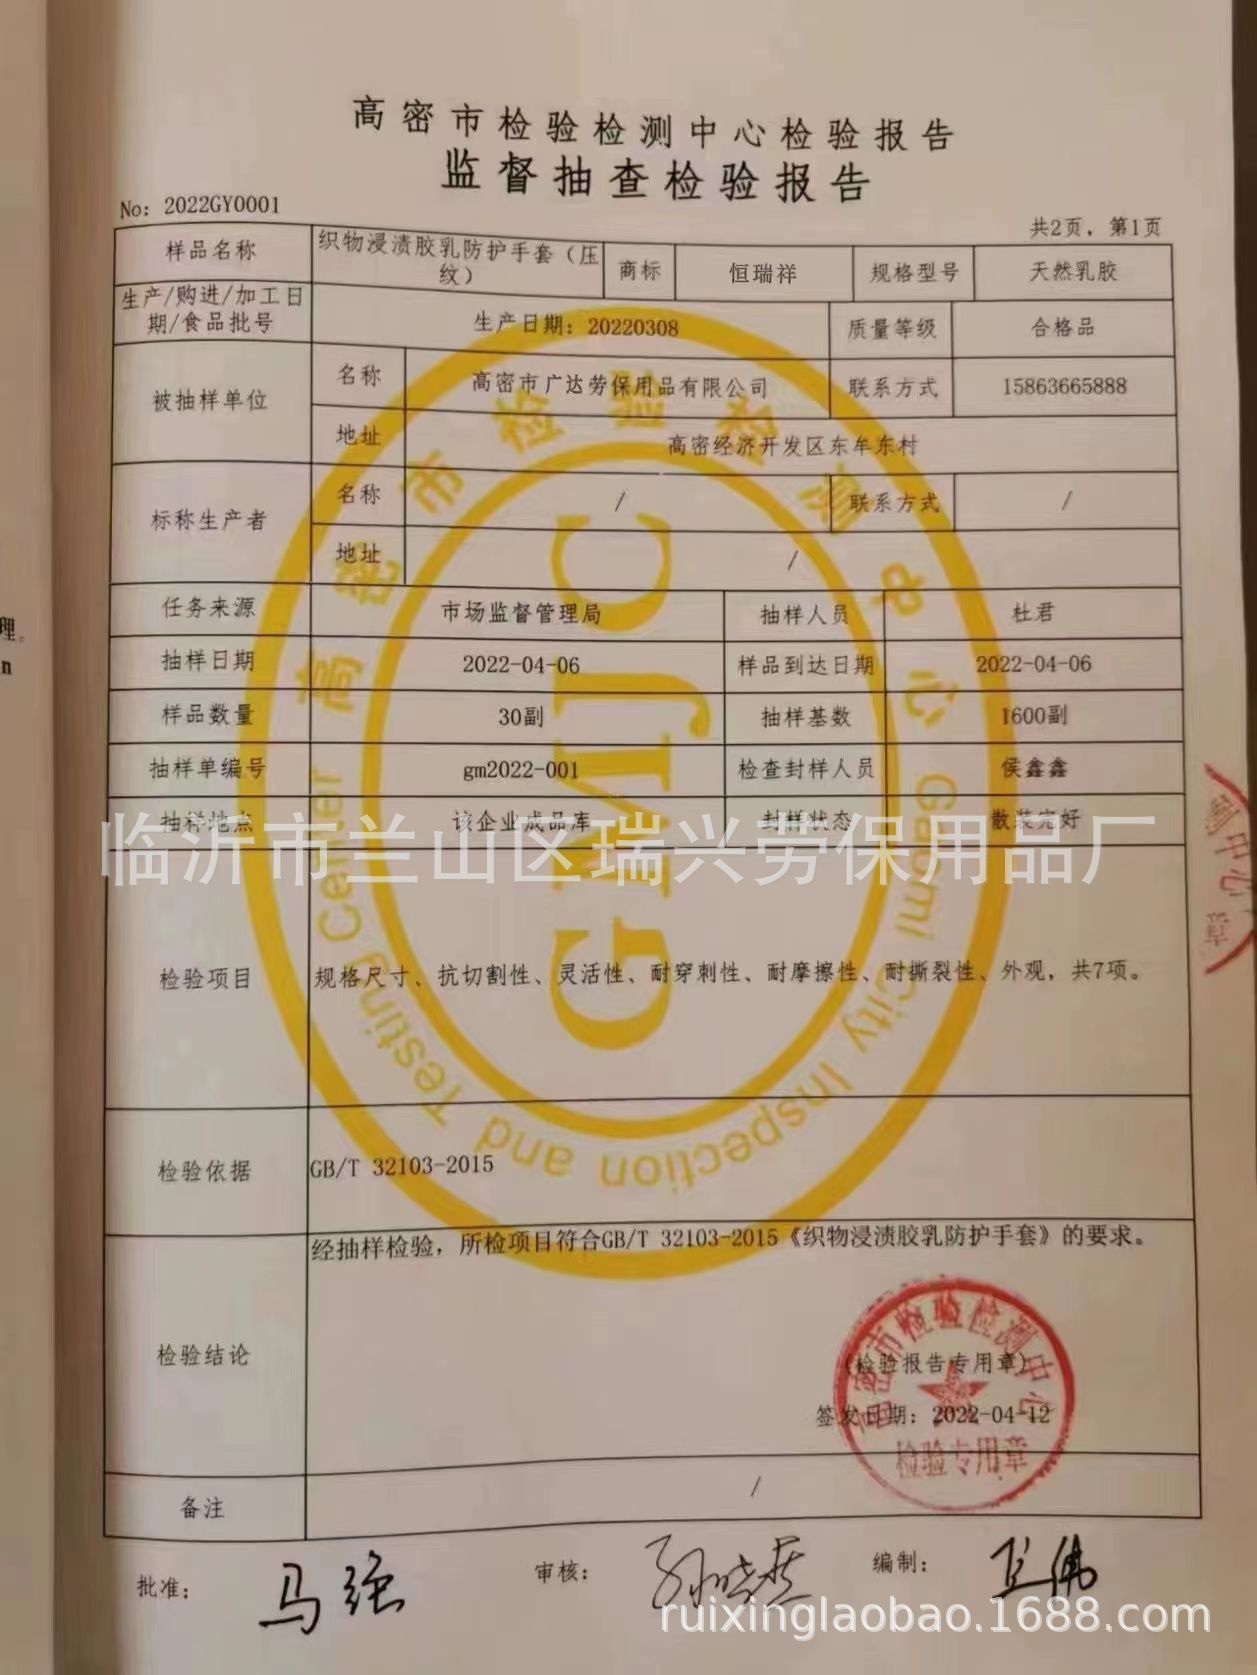 高密市检验检测中心检验报告
监督抽查检验报告
No: 2022GY0001
共2页，第1页
样品名称 织物浸渍胶乳防护手套（压纹） 商标 恒瑞祥 规格型号 天然乳胶
生产/购进/加工日期/食品批号 生产日期：20220308 质量等级 合格品
被抽样单位 名称 高密市广达劳保用品有限公司 联系方式 15863665888
地址 高密经济开发区东牟东村
标称生产者 名称 / 联系方式 /
地址 /
任务来源 市场监督管理局 抽样人员 杜君
抽样日期 2022-04-06 样品到达日期 2022-04-06
样品数量 30副 抽样基数 1600副
抽样单编号 gm2022-001 检查封样人员 侯鑫鑫
抽样地点 该企业成品库 封样状态 散装完好
临沂市兰山区瑞兴劳保用品厂
检验项目 规格尺寸、抗切割性、灵活性、耐穿刺性、耐摩擦性、耐撕裂性、外观，共7项。
检验依据 GB/T 32103-2015
检验结论 经抽样检验，所检项目符合GB/T 32103-2015《织物浸渍胶乳防护手套》的要求。
（检验报告专用章）
签发日期：2022-04-12
备注 /
批准： 马强 审核： 编制：
高密市检验检测中心 Gaomi City Inspection and Testing Center
GMJC
高密市检验检测中心
检验专用章
测中心
理。
n
ruixinglaobao.1688.com